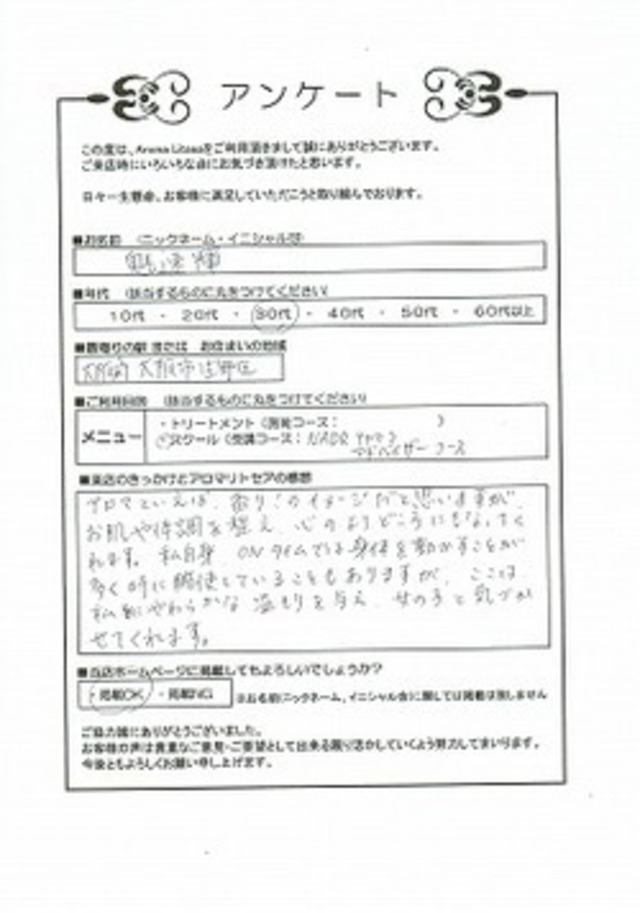 アンケート
この度は、Aroma Litseaをご利用頂きまして誠にありがとうございます。
ご来店時にいろいろな点にお気づき頂けたと思います。
日々一生懸命、お客様に満足していただこうと取り組んでおります。
■お名前 (ニックネーム・イニシャル可)
■年代 (該当するものに丸をつけてください)
10代 ・ 20代 ・ 30代 ・ 40代 ・ 50代 ・ 60代以上
■最寄りの駅 または お住まいの地域
大阪府 大阪市
■ご利用目的 (該当するものに丸をつけてください)
メニュー
・トリートメント(施術コース: )
・スクール(受講コース: NARD アロマ
アドバイザー コース
■来店のきっかけとアロマリトセアの感想
アロマといえば、香り!のイメージだと思いますが、
お肌や体調を整え、心のよりどころにもなってく
れます。私自身 ONタイムでは身体を動かすことが
多く時に酷使していることもありますが、ここは、
私にやわらかな温もりを与え、女の子と気づか
せてくれます。
■当店ホームページに掲載してもよろしいでしょうか?
・掲載OK ・掲載NG ※お名前(ニックネーム、イニシャル含)に関しては掲載は致しません
ご協力誠にありがとうございました。
お客様の声は貴重なご意見・ご要望として出来る限り活かしていくよう努力してまいります。
今後ともよろしくお願い申し上げます。